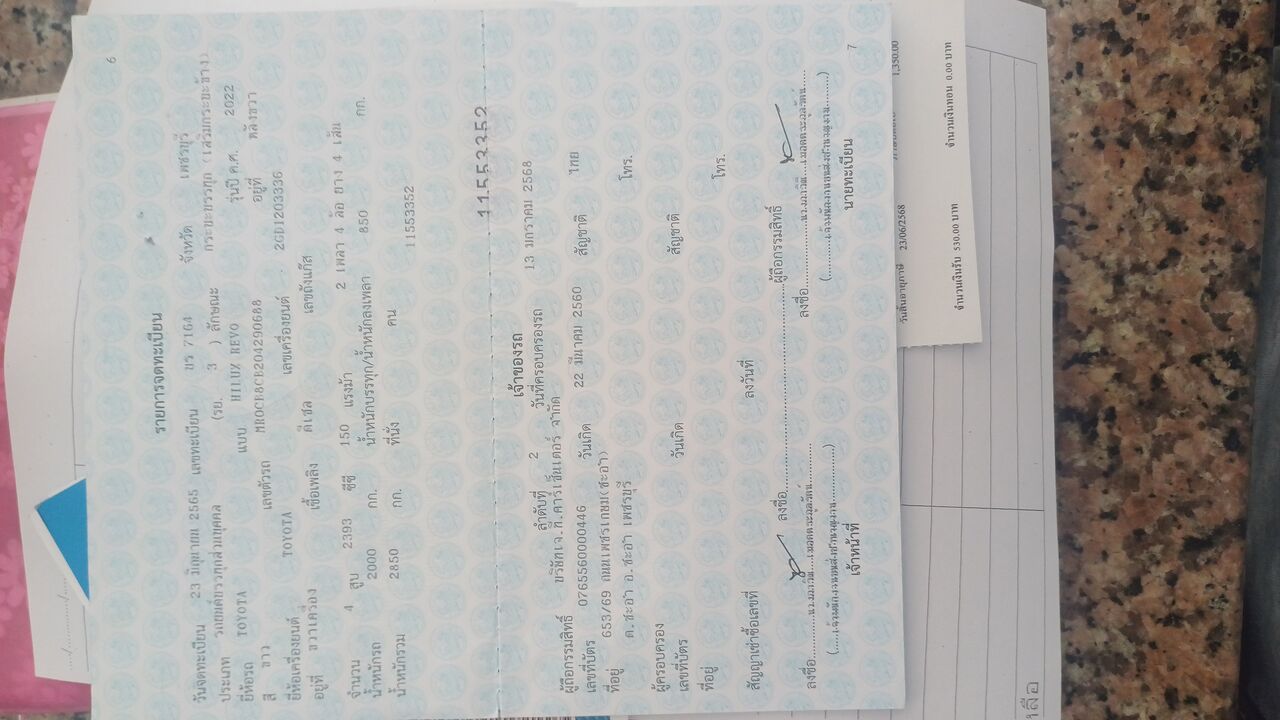 6
รายการจดทะเบียน
วันจดทะเบียน 23 มิถุนายน 2565 เลขทะเบียน บร 7164 จังหวัด เพชรบุรี
ประเภท รถยนต์บรรทุกส่วนบุคคล (รย. 3 ) ลักษณะ กระบะบรรทุก (เสริมกระบะข้าง)
ยี่ห้อรถ TOYOTA แบบ HILUX REVO รุ่นปี ค.ศ. 2022
สี ขาว เลขตัวรถ MR0CB8CB204290688 อยู่ที่ หลังขวา
ยี่ห้อเครื่องยนต์ TOYOTA เลขเครื่องยนต์ 2GD1203336
อยู่ที่ ขวาเครื่อง เชื้อเพลิง ดีเซล เลขถังแก๊ส
จำนวน 4 สูบ 2393 ซีซี 150 แรงม้า 2 เพลา 4 ล้อ ยาง 4 เส้น
น้ำหนักรถ 2000 กก. น้ำหนักบรรทุก/น้ำหนักลงเพลา 850 กก.
น้ำหนักรวม 2850 กก. ที่นั่ง คน 11553352
11553352
เจ้าของรถ
ลำดับที่ 2 วันที่ครอบครองรถ 13 มกราคม 2568
ผู้ถือกรรมสิทธิ์ บริษัทเจ.ที.คาร์เซ็นเตอร์ จำกัด
เลขที่บัตร 0765560000446 วันเกิด 22 มีนาคม 2560 สัญชาติ ไทย
ที่อยู่ 653/69 ถนนเพชรเกษม(ชะอำ) โทร.
ต.ชะอำ อ.ชะอำ เพชรบุรี
ผู้ครอบครอง
เลขที่บัตร วันเกิด สัญชาติ
ที่อยู่ โทร.
สัญญาเช่าซื้อเลขที่ ลงวันที่
ลงชื่อ ผู้ถือกรรมสิทธิ์
ลงชื่อ ลงชื่อ
เจ้าหน้าที่ นายทะเบียน
7
1,350.00
วันสิ้นอายุภาษี 23/06/2568
จำนวนเงินรับ 530.00 บาท จำนวนเงินทอน 0.00 บาท